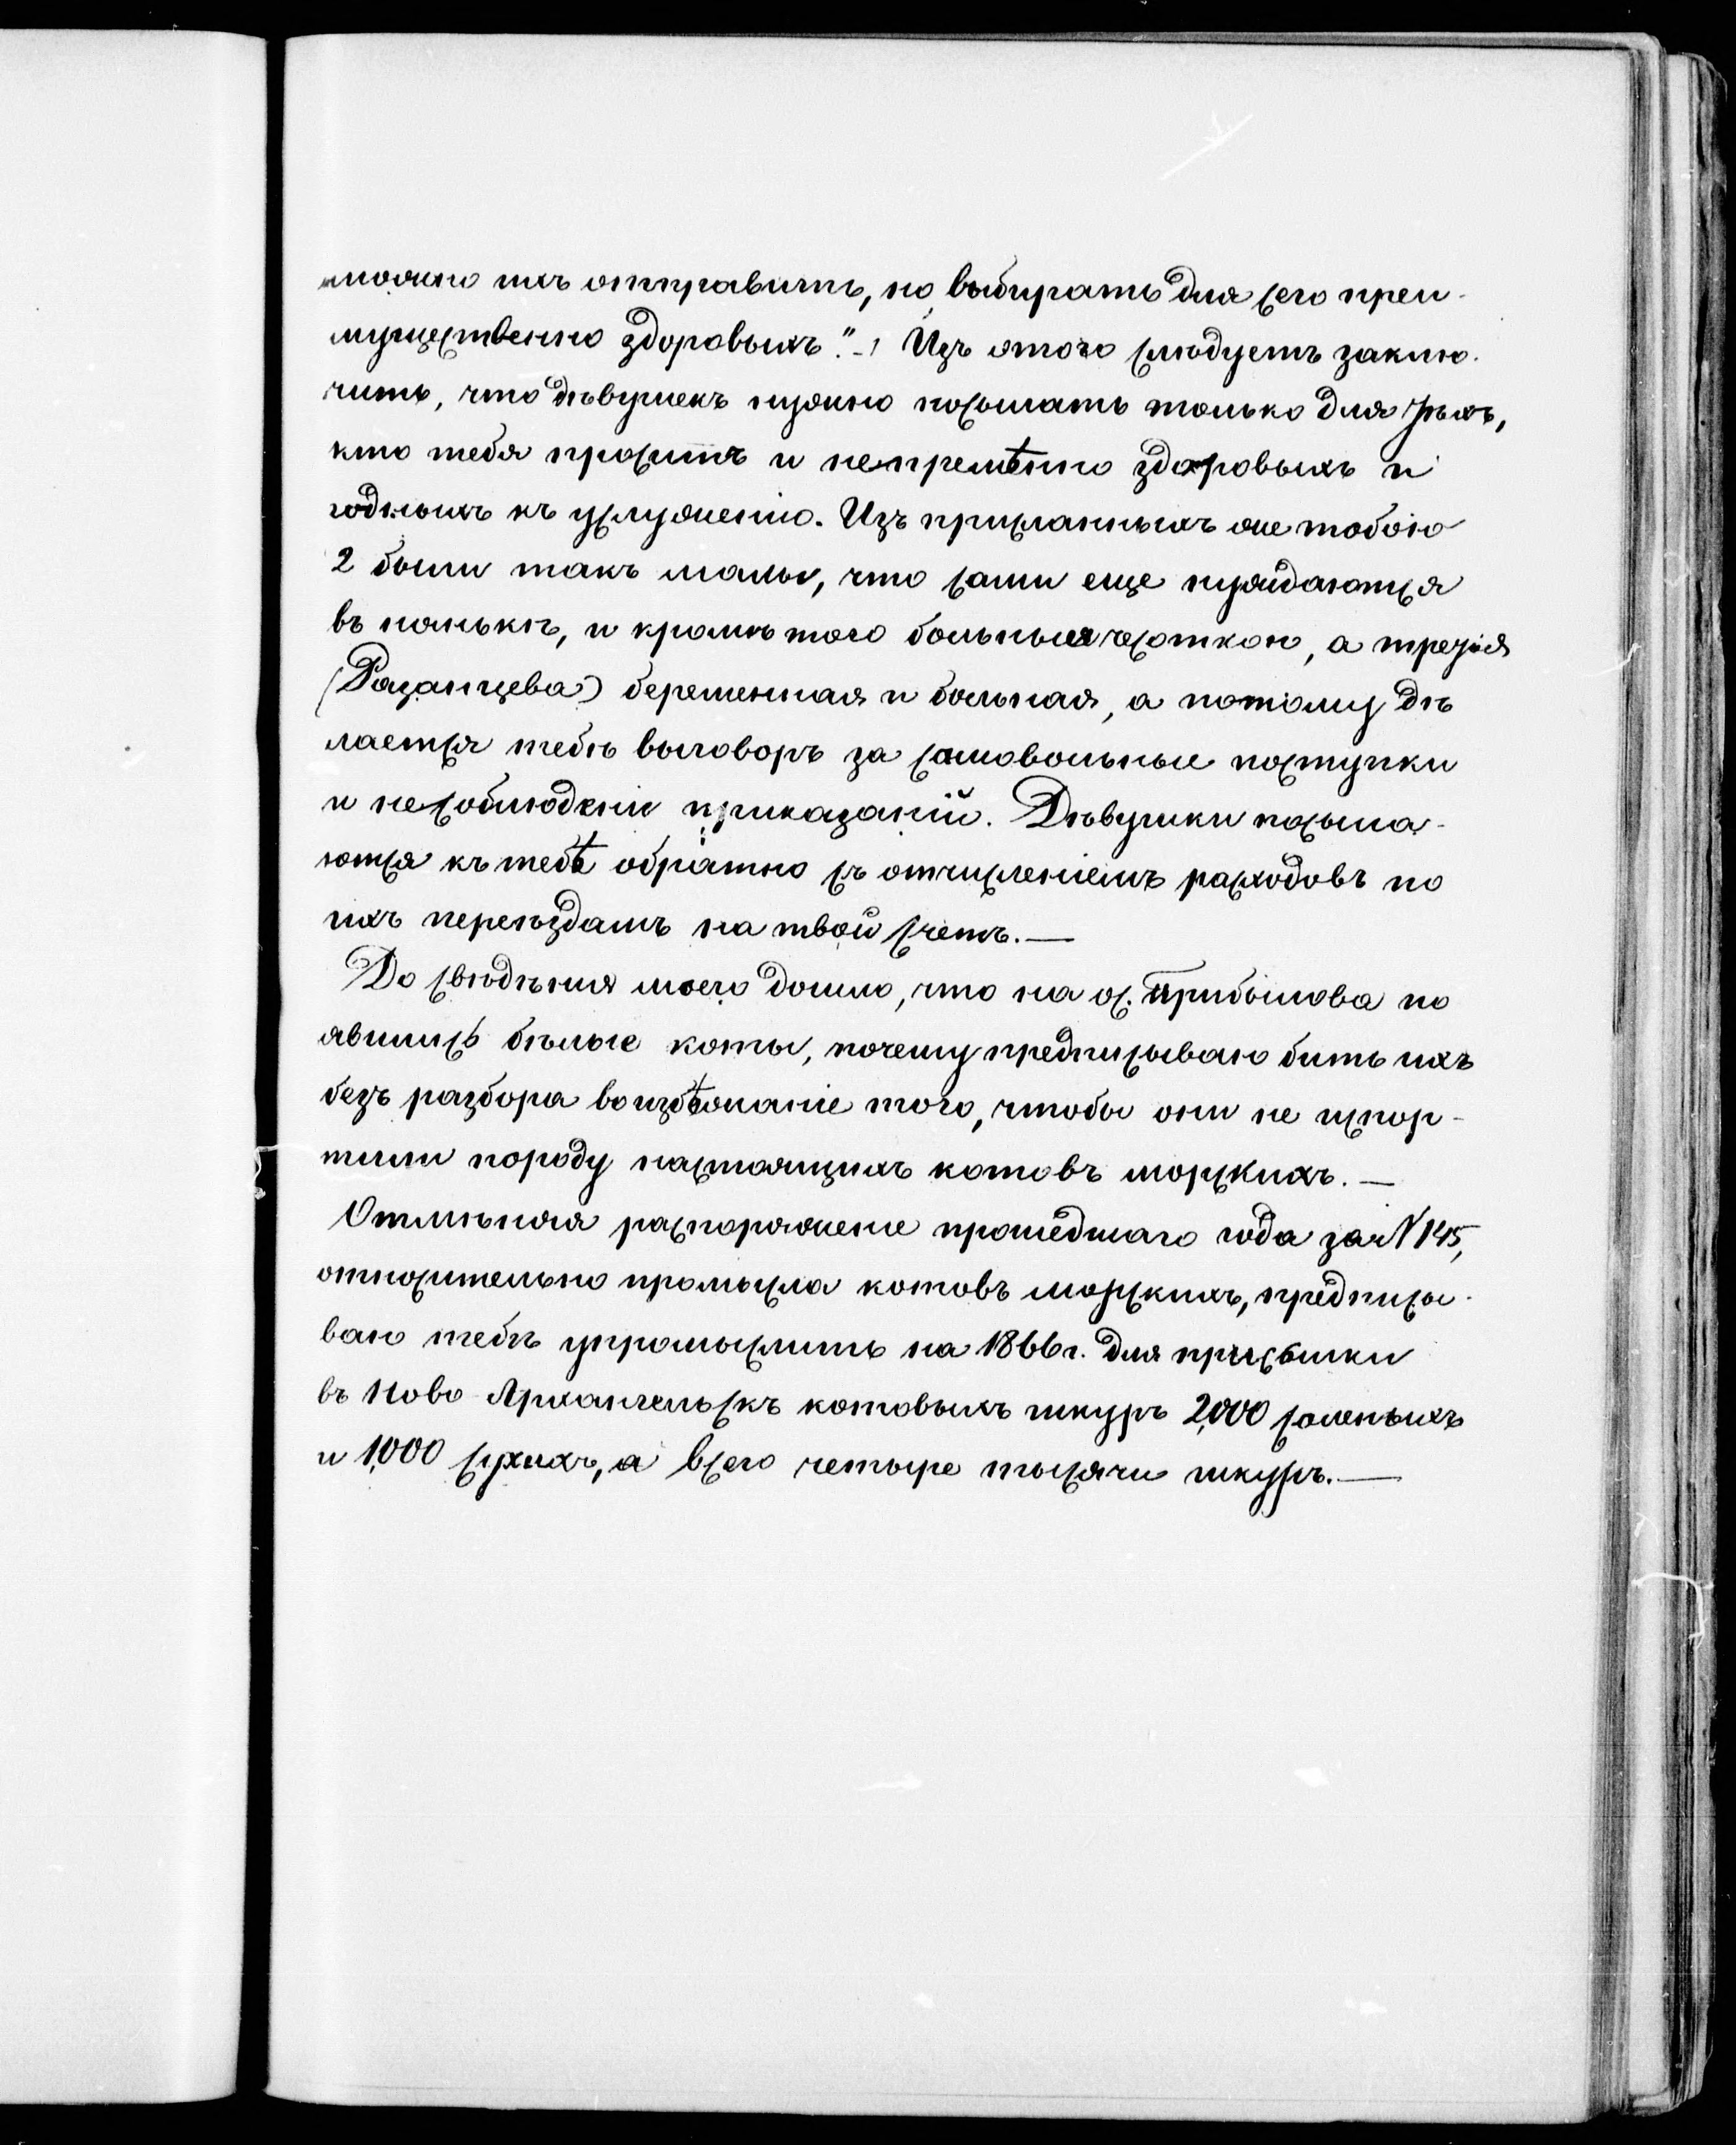 можно ихъ отправить, но выбирать для сего преи-
мущественно здоровыхъ." -, Изъ этого слѣдуетъ заклю-
чить, что дѣвушекъ нужно посылать только для тѣхъ,
кто тебя проситъ и непремѣнно здоровыхъ и
годныхъ къ услуженію. Изъ присланныхъ же тобою
2 были такъ малы, что сами еще нуждаются
въ нянькѣ, и кромѣ того больныя чесоткою, а третія
(Разанцева) беременная и больная, а потому дѣ
лается тебѣ выговоръ за самовольные поступки
и несоблюденіи приказаній. Дѣвушки посыла-
ются къ тебѣ обратно съ отчисленіемъ расходовъ по
ихъ переѣздамъ на твой счетъ. —
До свѣдѣнія моего дошло, что на ос. Прибылова по
явились бѣлые коты, почему предписываю бить ихъ
безъ разбора во избѣжаніе того, чтобы они не испор-
тили породу настоящихъ котовъ морскихъ. —
Отмѣняя распоряженіе прошедшаго года за N 145,
относительно промысла котовъ морскихъ, предписы-
ваю тебѣ упромыслить на 1866 г. для присылки
въ Ново-Архангельскъ котовыхъ шкуръ 2,000 соленыхъ
и 1,000 сухихъ, а всего четыре тысячи шкуръ. —